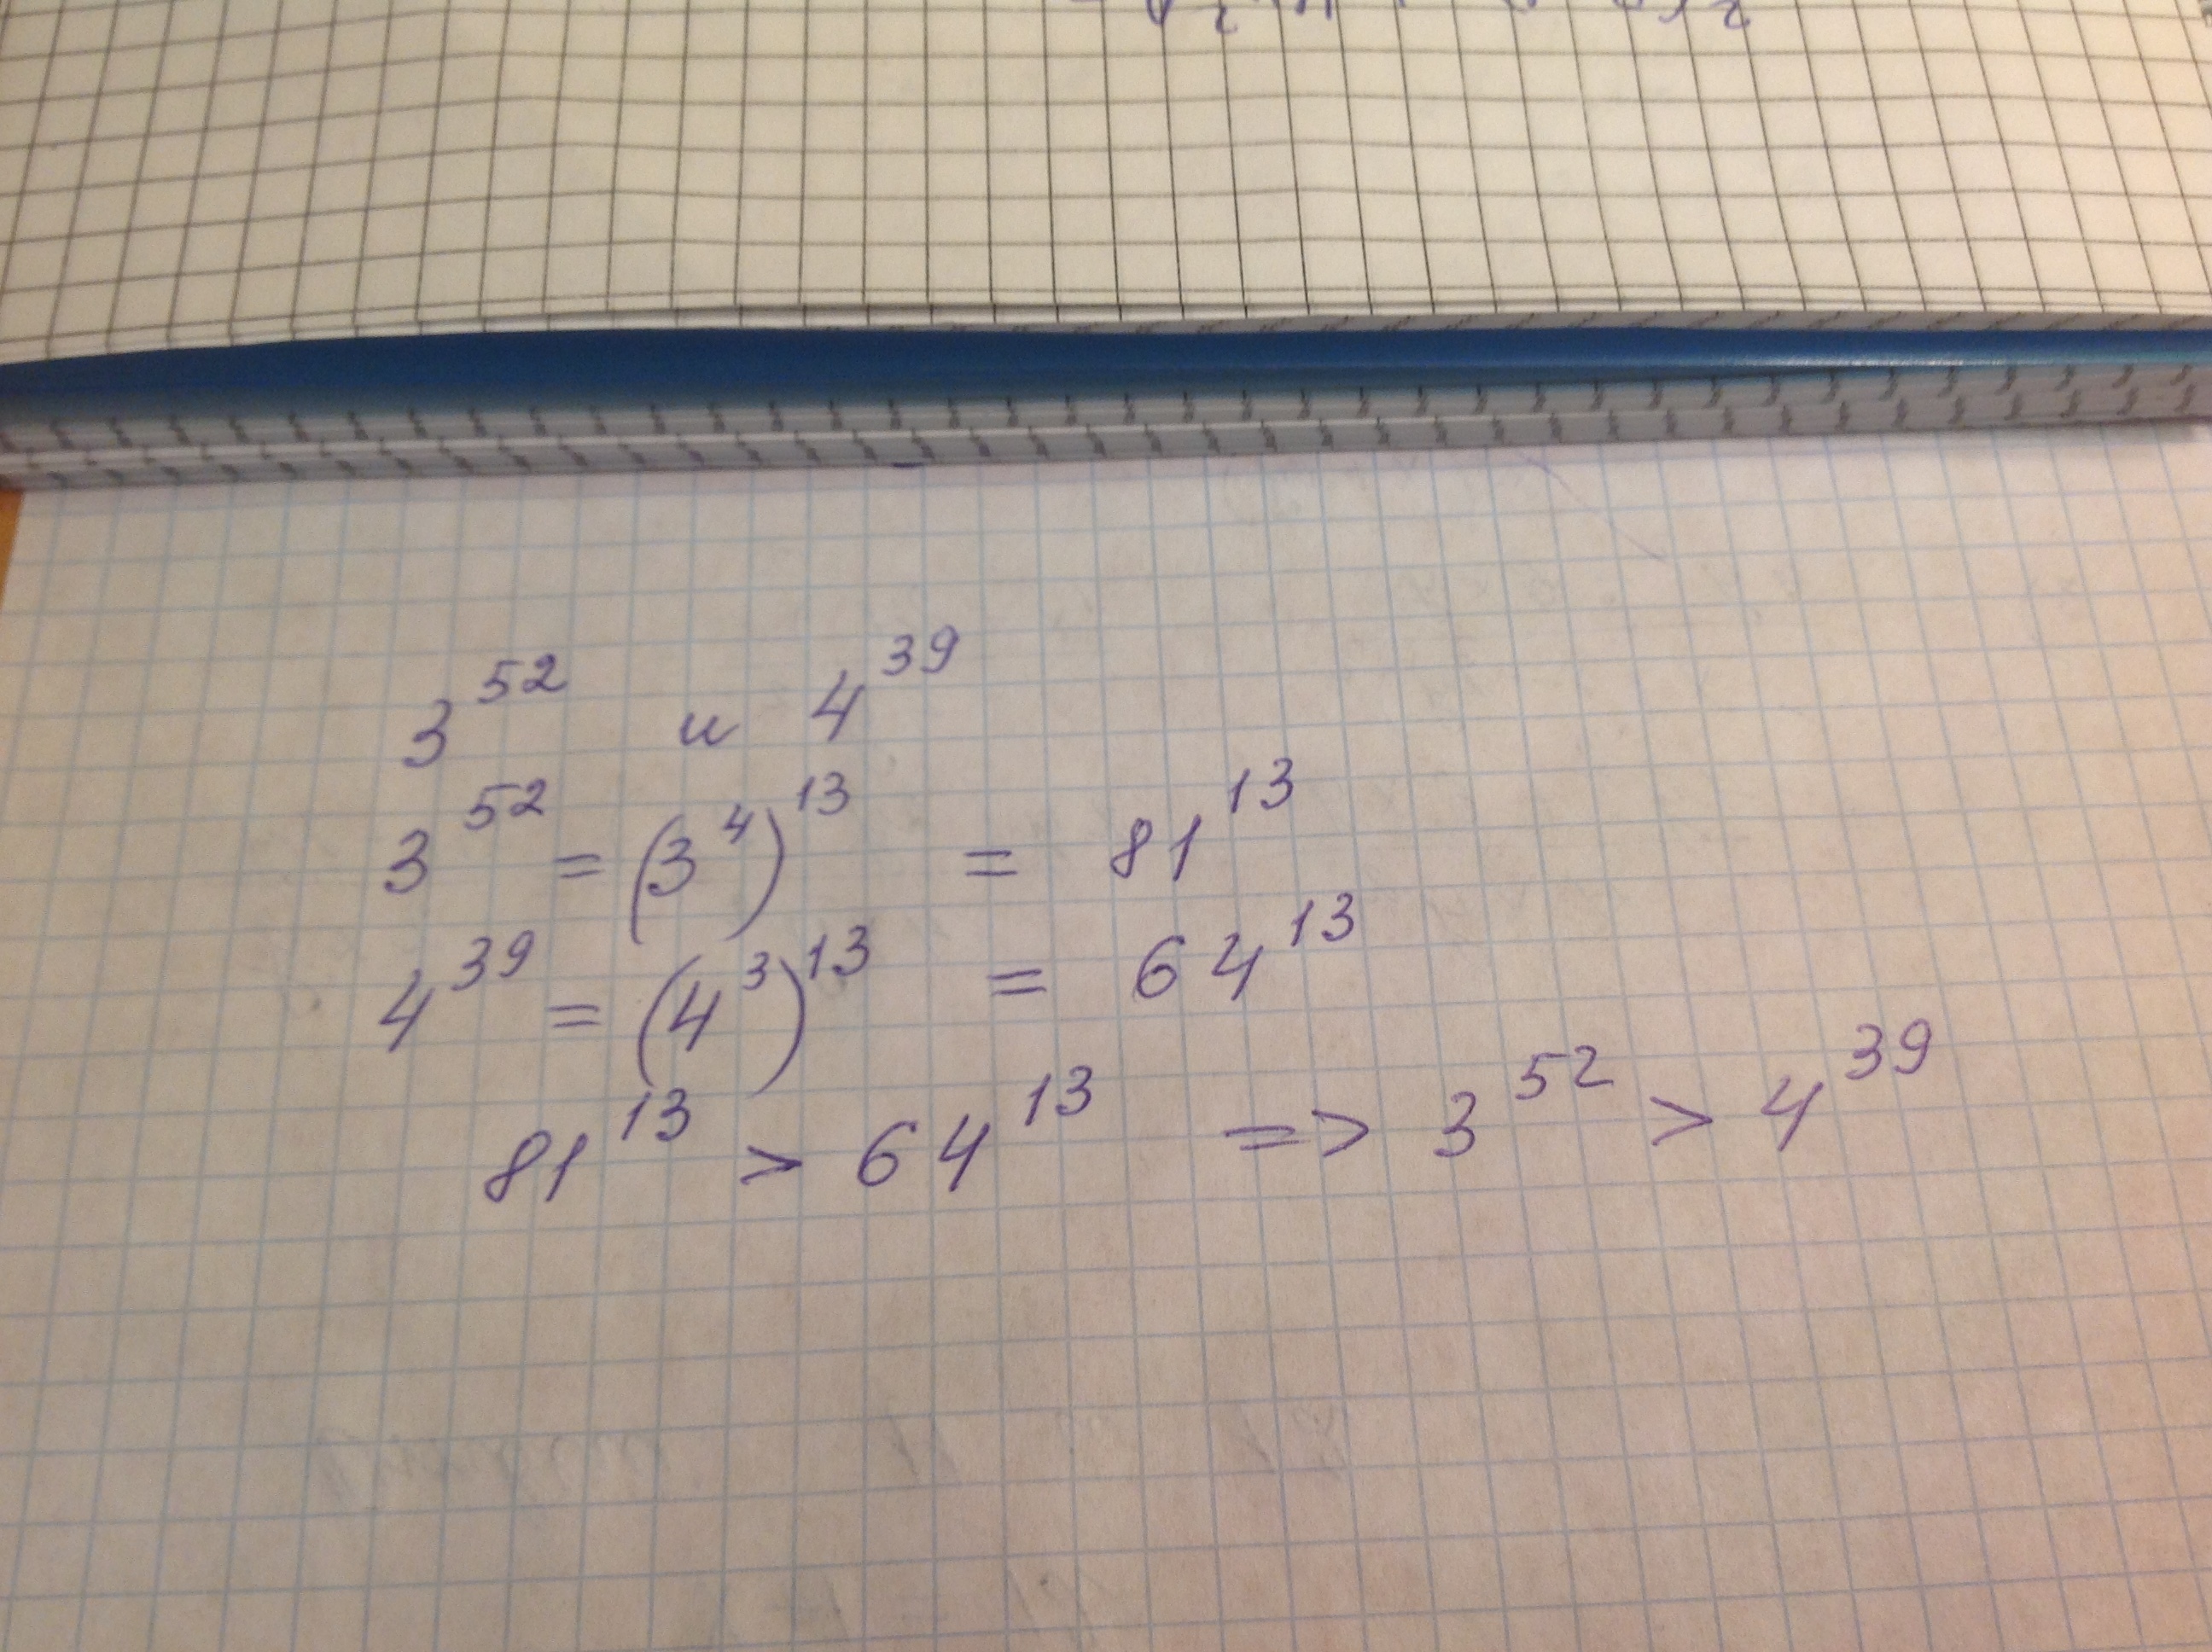 3^52 и 4^39
3^52 = (3^4)^13 = 81^13
4^39 = (4^3)^13 = 64^13
81^13 > 64^13 => 3^52 > 4^39